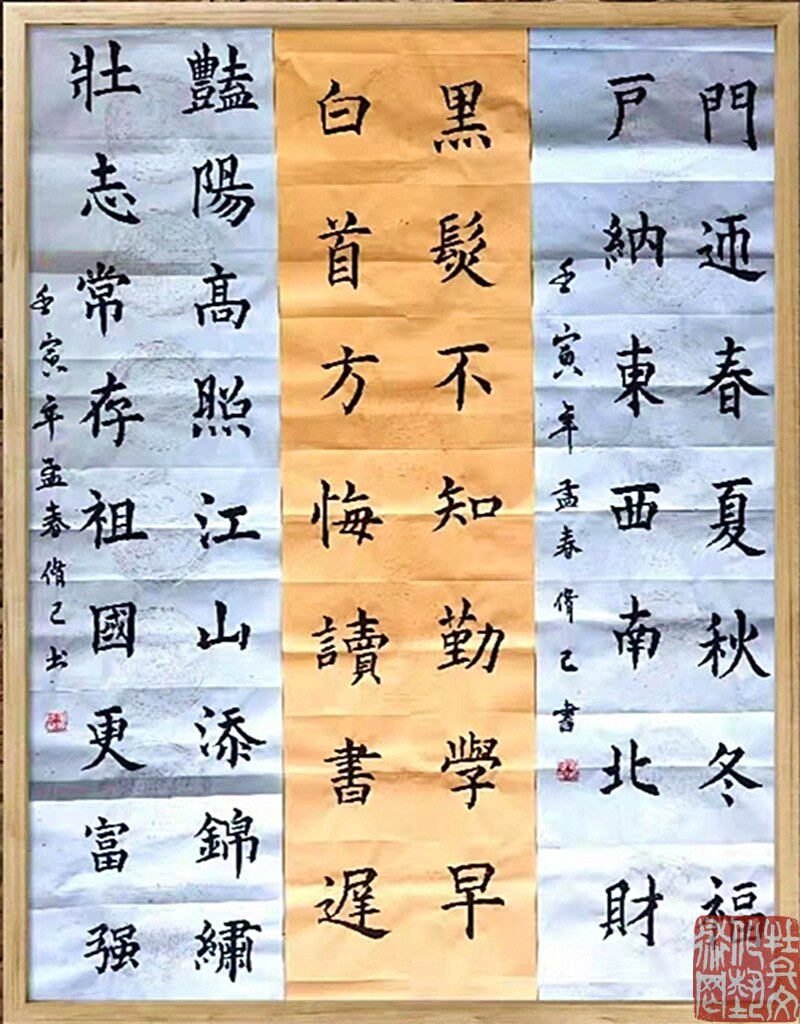 門迊春夏秋冬福
戸納東西南北財
壬寅年孟春脩己書
黒髮不知勤學早
白首方悔讀書遲
豔陽高照江山添錦繡
壯志常存祖國更富强
壬寅年孟春脩己书